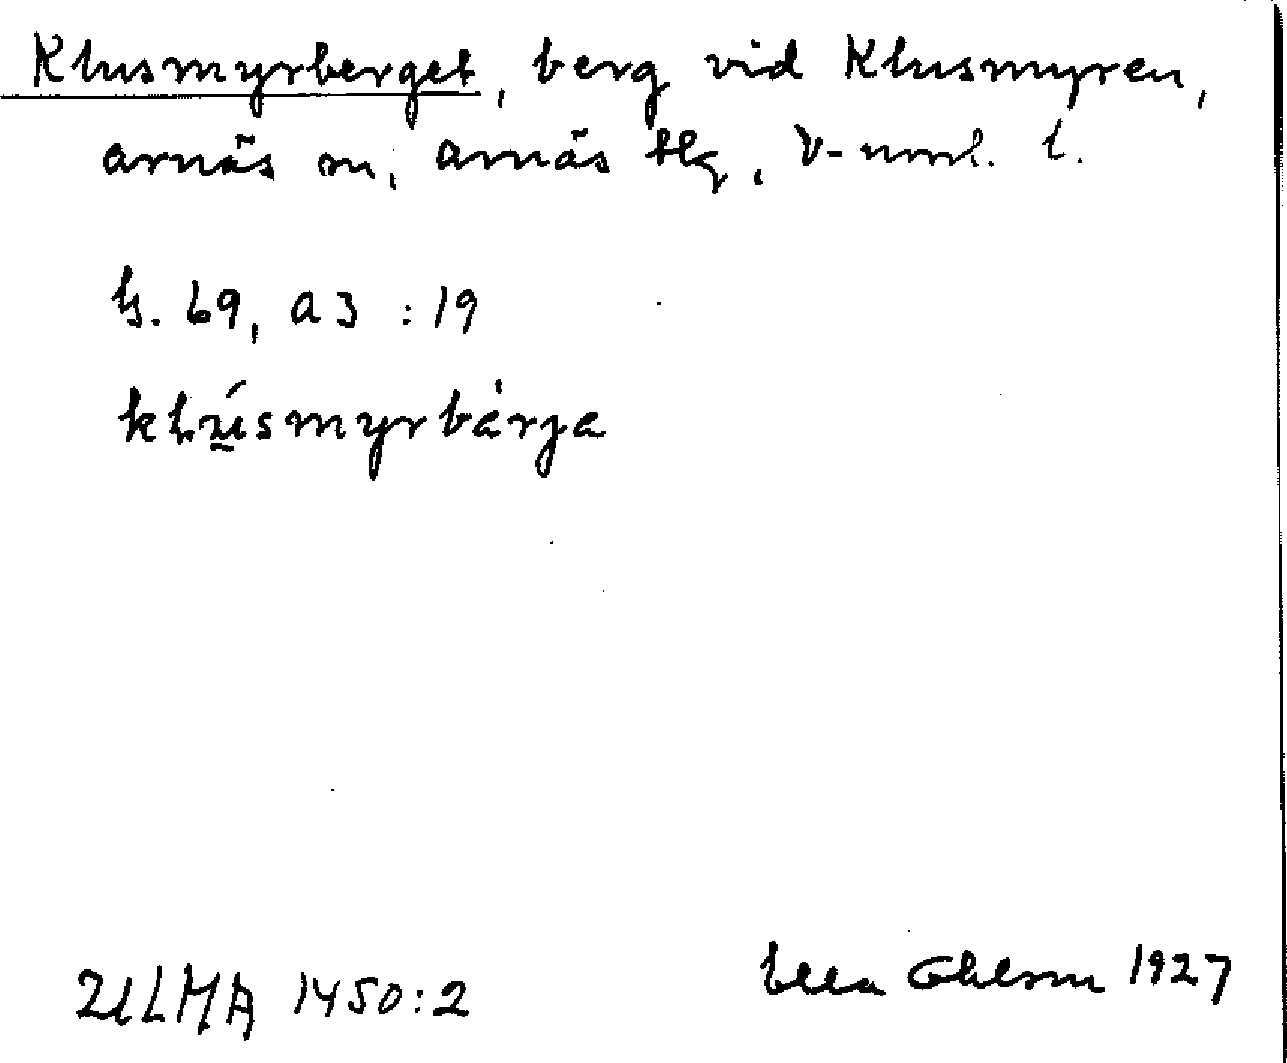 Klusmyrberget, berg vid Klusmyren,
arnäs sn, arnäs tlg, V-norrl. l.
h. 69, a3 : 19
klúsmyrbárja
ULMA 1450:2
Ella Ohlson 1927